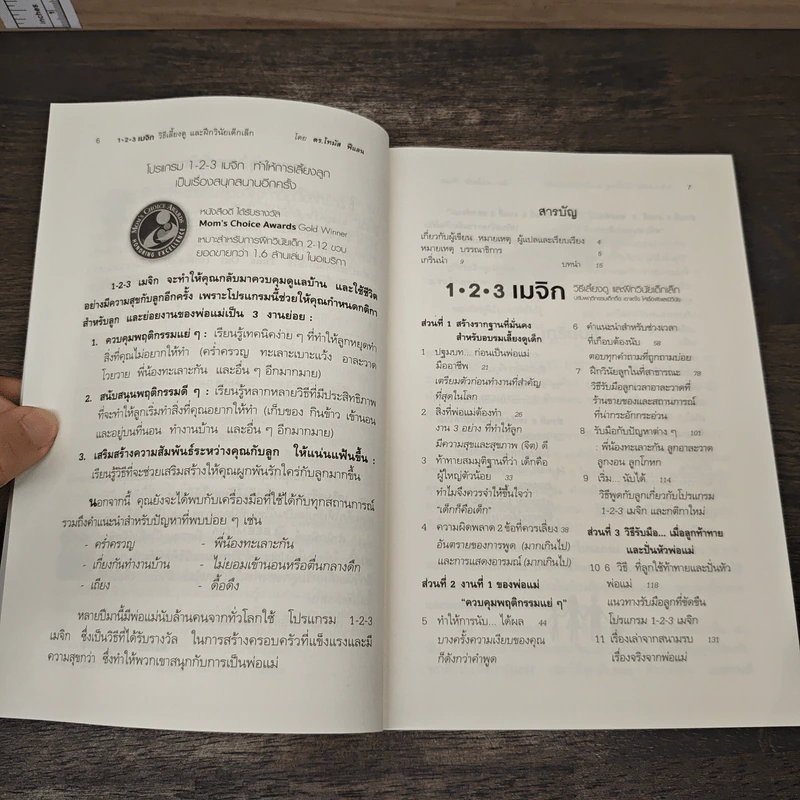 inches
6
1-2-3 เมจิก วิธีเลี้ยงดู และฝึกวินัยเด็กเล็ก
โดย ดร.โทมัส ฟีแลน
โปรแกรม 1-2-3 เมจิก ทำให้การเลี้ยงลูก
เป็นเรื่องสนุกสนานอีกครั้ง
MOM'S CHOICE AWARDS
HONORING EXCELLENCE
หนังสือดี ได้รับรางวัล
Mom's Choice Awards Gold Winner
เหมาะสำหรับการฝึกวินัยเด็ก 2-12 ขวบ
ยอดขายกว่า 1.6 ล้านเล่ม ในอเมริกา
1-2-3 เมจิก จะทำให้คุณกลับมาควบคุมดูแลบ้าน และใช้ชีวิต
อย่างมีความสุขกับลูกอีกครั้ง เพราะโปรแกรมนี้ช่วยให้คุณกำหนดกติกา
สำหรับลูก และย่อยงานของพ่อแม่เป็น 3 งานย่อย :
1. ควบคุมพฤติกรรมแย่ ๆ : เรียนรู้เทคนิคง่าย ๆ ที่ทำให้ลูกหยุดทำ
สิ่งที่คุณไม่อยากให้ทำ (คร่ำครวญ ทะเลาะเบาะแว้ง อาละวาด
โวยวาย พี่น้องทะเลาะกัน และอื่น ๆ อีกมากมาย)
2. สนับสนุนพฤติกรรมดี ๆ : เรียนรู้หลากหลายวิธีที่มีประสิทธิภาพ
ที่จะทำให้ลูกเริ่มทำสิ่งที่คุณอยากให้ทำ (เก็บของ กินข้าว เข้านอน
และอยู่บนที่นอน ทำงานบ้าน และอื่น ๆ อีกมากมาย)
3. เสริมสร้างความสัมพันธ์ระหว่างคุณกับลูก ให้แน่นแฟ้นขึ้น :
เรียนรู้วิธีที่จะช่วยเสริมสร้างให้คุณผูกพันรักใคร่กับลูกมากขึ้น
นอกจากนี้ คุณยังจะได้พบกับเครื่องมือที่ใช้ได้กับทุกสถานการณ์
รวมถึงคำแนะนำสำหรับปัญหาที่พบบ่อย ๆ เช่น
- คร่ำครวญ - พี่น้องทะเลาะกัน
- เกี่ยงกันทำงานบ้าน - ไม่ยอมเข้านอนหรือตื่นกลางดึก
- เถียง - ดื้อดึง
หลายปีมานี้มีพ่อแม่นับล้านคนจากทั่วโลกใช้ โปรแกรม 1-2-3
เมจิก ซึ่งเป็นวิธีที่ได้รับรางวัล ในการสร้างครอบครัวที่แข็งแรงและมี
ความสุขกว่า ซึ่งทำให้พวกเขาสนุกกับการเป็นพ่อแม่
7
สารบัญ
เกี่ยวกับผู้เขียน หมายเหตุ ผู้แปลและเรียบเรียง 4
หมายเหตุ บรรณาธิการ 5
เกริ่นนำ 9 บทนำ 15
1•2•3 เมจิก
วิธีเลี้ยงดู และฝึกวินัยเด็กเล็ก
ส่วนที่ 1 สร้างรากฐานที่มั่นคง
สำหรับอบรมเลี้ยงดูเด็ก
1 ปฐมบท... ก่อนเป็นพ่อแม่
มืออาชีพ 21
เตรียมตัวก่อนทำงานที่สำคัญ
ที่สุดในโลก
2 สิ่งที่พ่อแม่ต้องทำ 26
งาน 3 อย่าง ที่ทำให้ลูก
มีความสุขและสุขภาพ (จิต) ดี
3 ท้าทายสมมุติฐานที่ว่า เด็กคือ
ผู้ใหญ่ตัวน้อย 33
ทำไมจึงควรจำให้ขึ้นใจว่า
"เด็กก็คือเด็ก"
4 ความผิดพลาด 2 ข้อที่ควรเลี่ยง 38
อันตรายของการพูด (มากเกินไป)
และการแสดงอารมณ์ (มากเกินไป)
ส่วนที่ 2 งานที่ 1 ของพ่อแม่
"ควบคุมพฤติกรรมแย่ ๆ"
5 ทำให้การนับ... ได้ผล 44
บางครั้งความเงียบของคุณ
ก็ดังกว่าคำพูด
6 คำแนะนำสำหรับช่วงเวลา
ที่เกือบต้องนับ 58
ตอบทุกคำถามที่ถูกถามบ่อย
7 ฝึกวินัยลูกในที่สาธารณะ 78
วิธีรับมือลูกเวลาอาละวาดที่
ร้านขายของและสถานการณ์
ที่น่ากระอักกระอ่วน
8 รับมือกับปัญหาต่าง ๆ 101
: พี่น้องทะเลาะกัน ลูกอาละวาด
ลูกงอน ลูกโกหก
9 เริ่ม... นับได้ 114
วิธีพูดกับลูกเกี่ยวกับโปรแกรม
1-2-3 เมจิก และกติกาใหม่
ส่วนที่ 3 วิธีรับมือ... เมื่อลูกท้าทาย
และปั่นหัวพ่อแม่
10 6 วิธี ที่ลูกใช้ท้าทายและปั่นหัว
พ่อแม่ 118
แนวทางรับมือลูกที่ขัดขืน
โปรแกรม 1-2-3 เมจิก
11 เรื่องเล่าจากสนามรบ 131
เรื่องจริงจากพ่อแม่